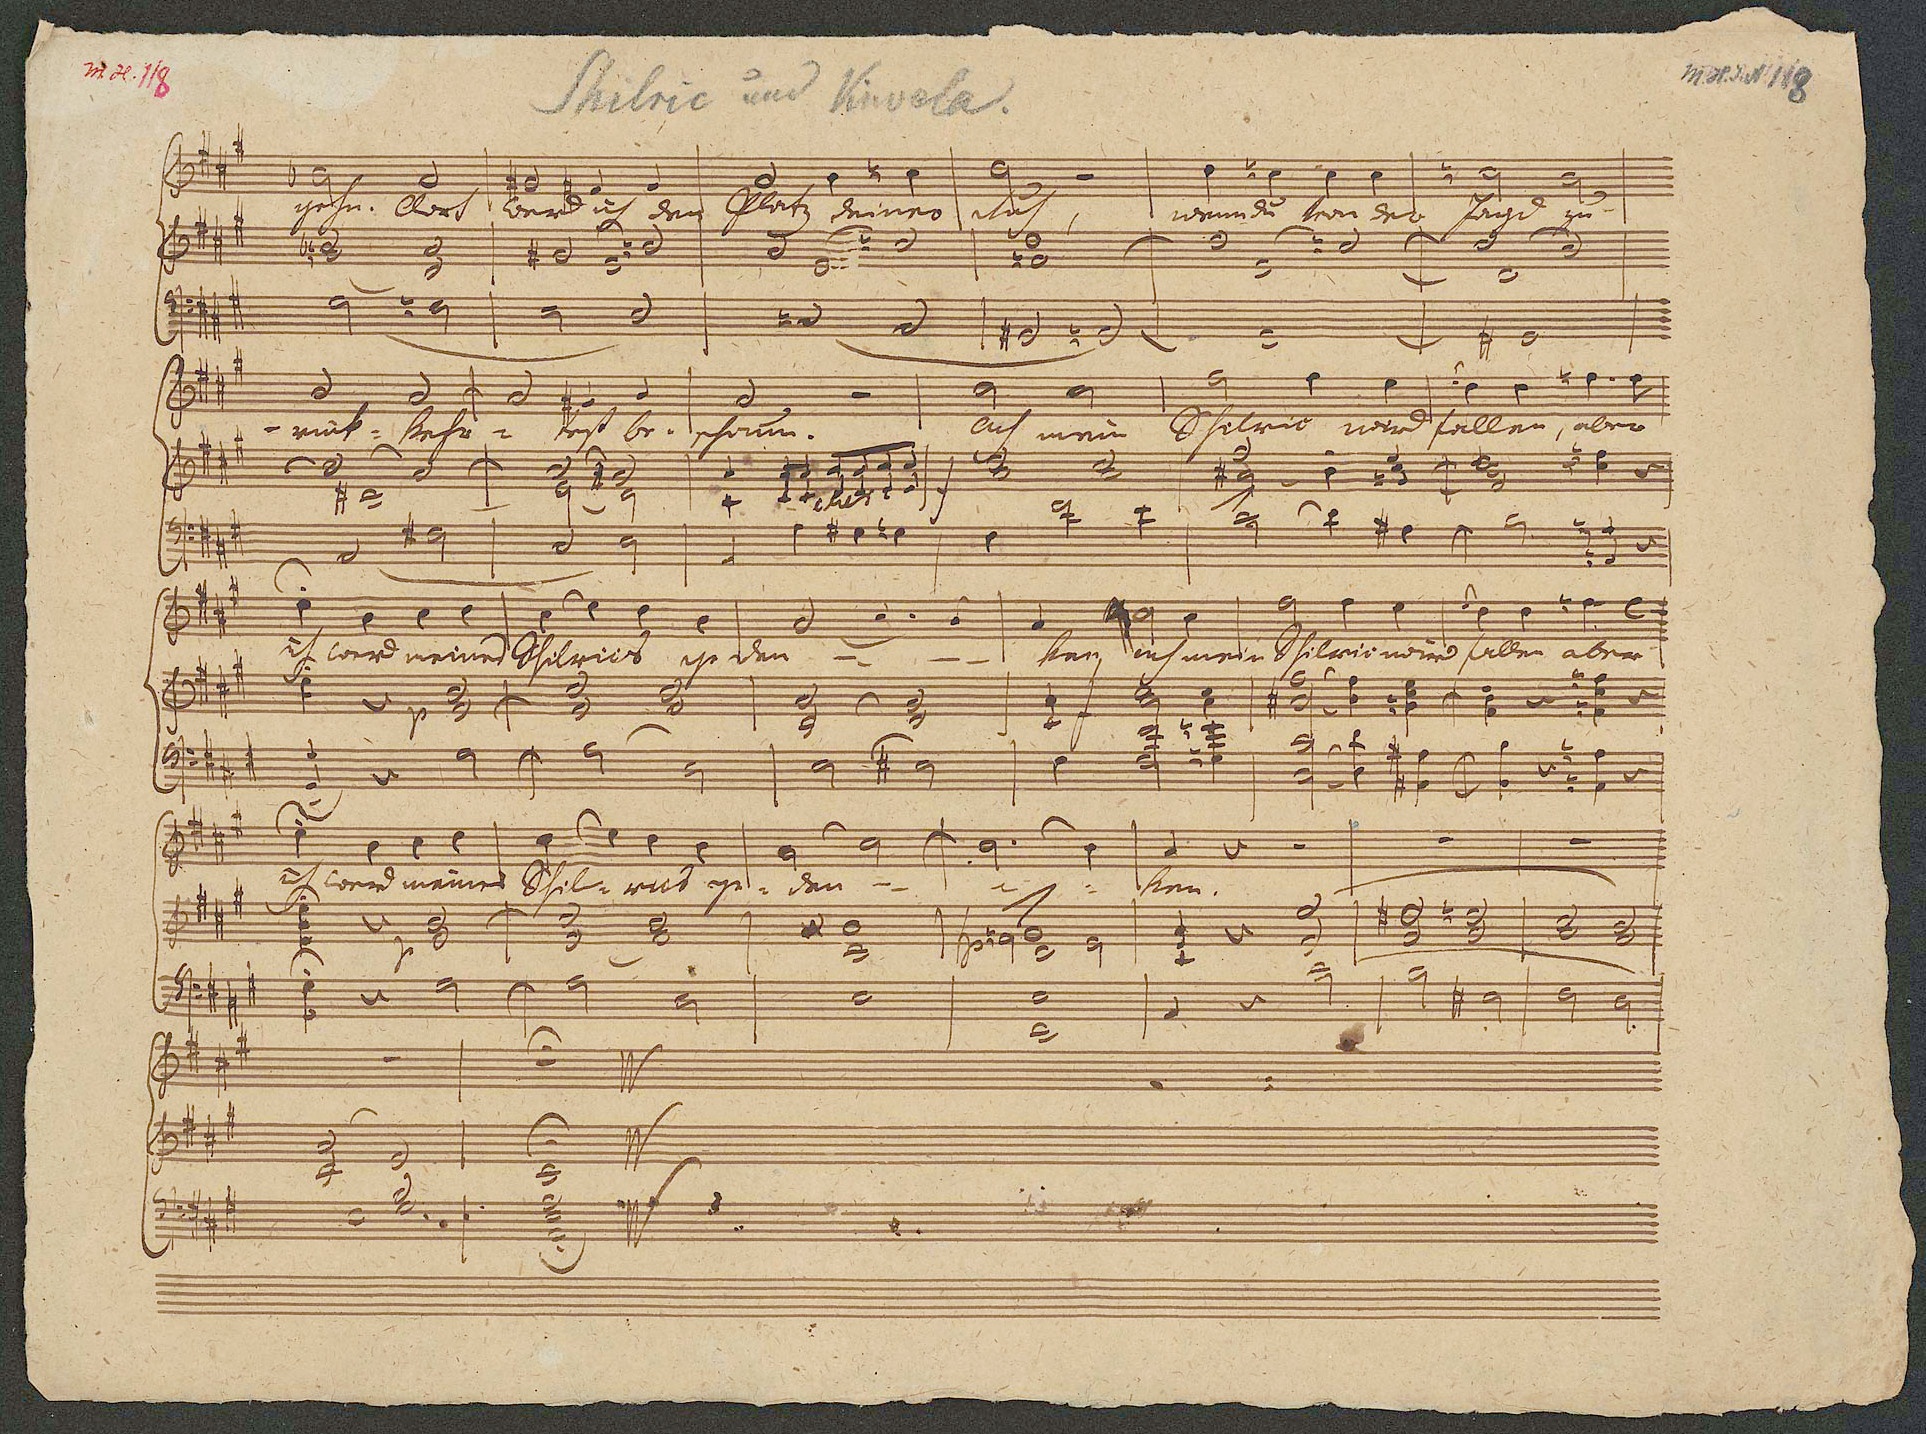 118
118
Shilric und Vinvela.
gehn. Dort werd ich den Platz deiner Ruh, wenn du von der Jagd zu-
-rück- kehr- test be- schaun. Ach mein Shilric wird fallen, aber
ich werd meines Shilrics geden - - - ken ach mein Shilric wird fallen aber
ich werd meines Shil- rics ge- den - - - - ken.